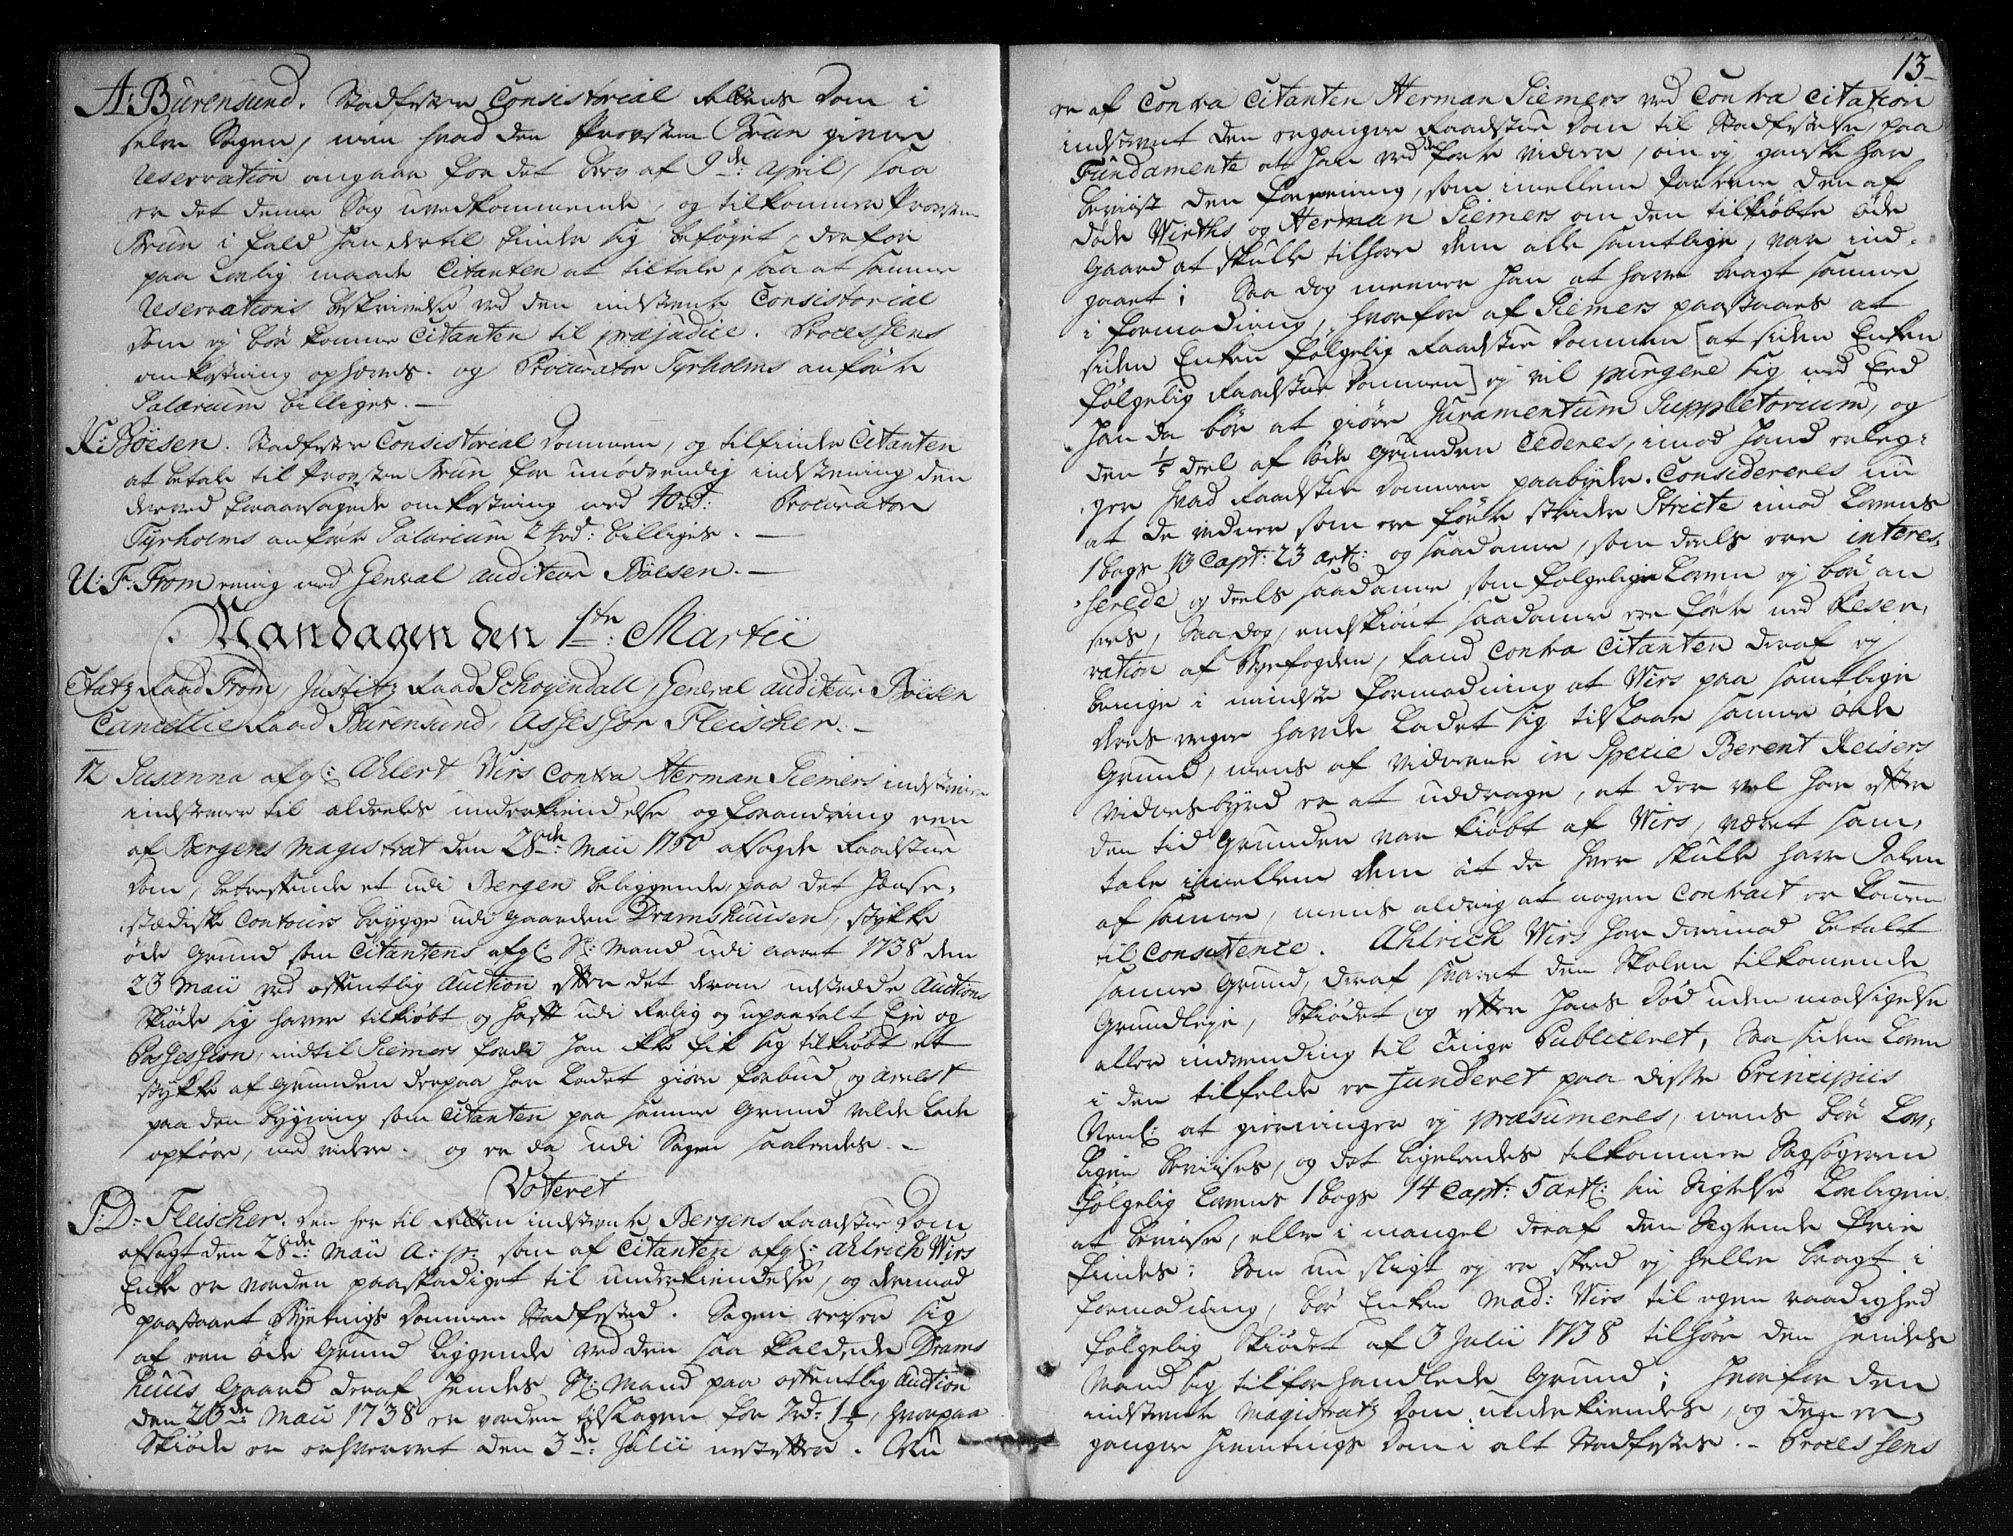 A: Bürensund. Stadfester Consistorial Rettens Dom i
selve Sagen, men hvad den Provsten Brun givne
reservation angaar for det brev af 9de: April, saa
er det denne Sag uvedkommende, og tilkommer Provsten
Brun i fald han dertil finder sig beføjet, derfor
paa lovlig maade Citanten at tiltale, saa at samme
reservations beskrivelse ved den indstevnte Consistorial
Dom ej bør komme Citanten til præjudice. Processens
omkostning ophæves. og Procurator Tyrholms anførte
Salarium billiges. –
K: Böesen. Stadfester Consistorial Dommen, og tilfinder Citanten
at betale til Provsten Brun for unødvendig indstevning den
derved foraarsagede omkostning med 40rd: Procurator
Tyrholms anførte Salarium 24rd: billiges. –
U: F: From eenig med General Auditeur Böesen. –
Mandagen den 1ste: Martii
Etatz Raad From, Justitz Raad Schøyendall, General Auditeur Böesen
Cancellie Raad Bürensund, Assessor Fleischer. –
12 Susanna afg: Ahlert Wirs Contra Herman Siemers
indstevner til aldeeles underkiendelse og forandring een
af Bergens Magistrat den 28de: Maii 1750 afsagde Raadstue
Dom, betreffende et udi Bergen beliggende, paa det Hanse-
stædiske Contoirs brygge udi gaarden Dramshuusen, stykke
øde Grund som Citantens afg: Sl: Mand udi aaret 1738 den
23 Maii ved offentlig Auction efter det derom udstædde Auctions
Skiøde sig haver tilkiøbt og hafft udi rolig og upaatalt Eje og
Possession, indtil Siemers fordi han ikke fik sig tilkiøbt et
stykke af Grunden derpaa har ladet giøre forbud og Arrest
paa den bygning som Citanten paa samme Grund vilde lade
opføre, med videre. og er da udi Sagen saaledes –
Votteret
P: D: Fleischer. Den her til Retten indstevnte Bergens Raadstue Dom
afsagt den 28de: Maii A: pr: som af Citanten afg: Ahlrich Wirs
Enke er vorden paaskadiget til underkiendelse, og derimod
paastaaet Byetings Dommen Stadfested. Sagen reiser sig
af een øde Grund liggende ved den saa kaldede Drams
huus Gaard deraf hendes Sl: Mand paa offentlig Auction
den 23de: Maii 1738 er vorden tilslagen for rd: 1 , hvorpaa
Skiøde er erhvervet den 3de: Julii nestefter. Nu
13
er af Contra Citanten Herman Siemers ved Contra Citation
indstevnt den ergangne Raadstue Dom til Stadfestelse, paa
Fundamente at han ved førte vidner, om ej ganske har
beviist den foreening, som imellem parterne den af
døde Wirths og Herman Siemers om den tilkiøbte øde
Gaard at skulle tilhøre dem alle samtlige, var ind-
gaaet; Saa dog meener han at have bragt samme
i formodning, hvorfor af Siemers paastaaes at
siden Enken følgelig Raadstue Dommen [at siden Enken
følgelig Raadstue Dommen] ej vil purgere sig med Eed
han da bør at giøre Juramentum Suppletorium, og
den 1/5 deel af øde Grunden Cederes, imod hand erleg-
ger hvad Raadstue Dommen paabyder. Considereres nu
at de vidner som ere førte strider Stricte imod Lovens
1 bogs 13 Capt: 23 art: og saadanne, som deels ere interes-
serede og deels saadanne som følgelig Loven ej bør an
sees, Saa dog, endskiønt saadanne ere førte med Reser-
vation af Byefogden, kand Contra Citanten deraf ej
bringe i mindste formodning at Wirs paa samtlige
deres vegne havde ladet sig tilslaae samme øde
Grund, mens af vidnerne in Specie Berent Keisers
vidnesbyrd er at uddrage, at der vel har efter
den tid Grunden var kiøbt af Wirs, været sam-
tale imellem dem at de hver skulle have Delen
af samme, mens aldrig at nogen Contract er kommen
til Consistence. Ahlrich Wirs har derimod betalt
samme Grund, deraf svaret den Skolen tilkommende
Grundleje, Skiødet og efter hans Død uden modsigelse
eller indvending til Tinge Publiceret, Saa siden Loven
i den tilfelde er funderet paa disse Principiis
Neml: at gierninger ej præsumeres, mens bør Lov-
ligen bevises, og det ligeledes tilkommer Sagsøgeren
følgelig Lovens 1 bogs 14 Capt: 5 art: sin Sigtelse Lovligen
at bevise, eller i mangel deraf den Sigtende frie
findes; Som nu sligt ej er skeed ej heller bragt i
formodning, bør Enken Mad: Wirs til egen raadighed
følgelig Skiødet af 3 Julii 1738 tilhøre den hendes
Mand sig tilforhandlede Grund; hvorfor den
indstevnte Magistratz Dom underkiendes, og den er-
gangne hiemtings Dom i alt Stadfestes. – Processens